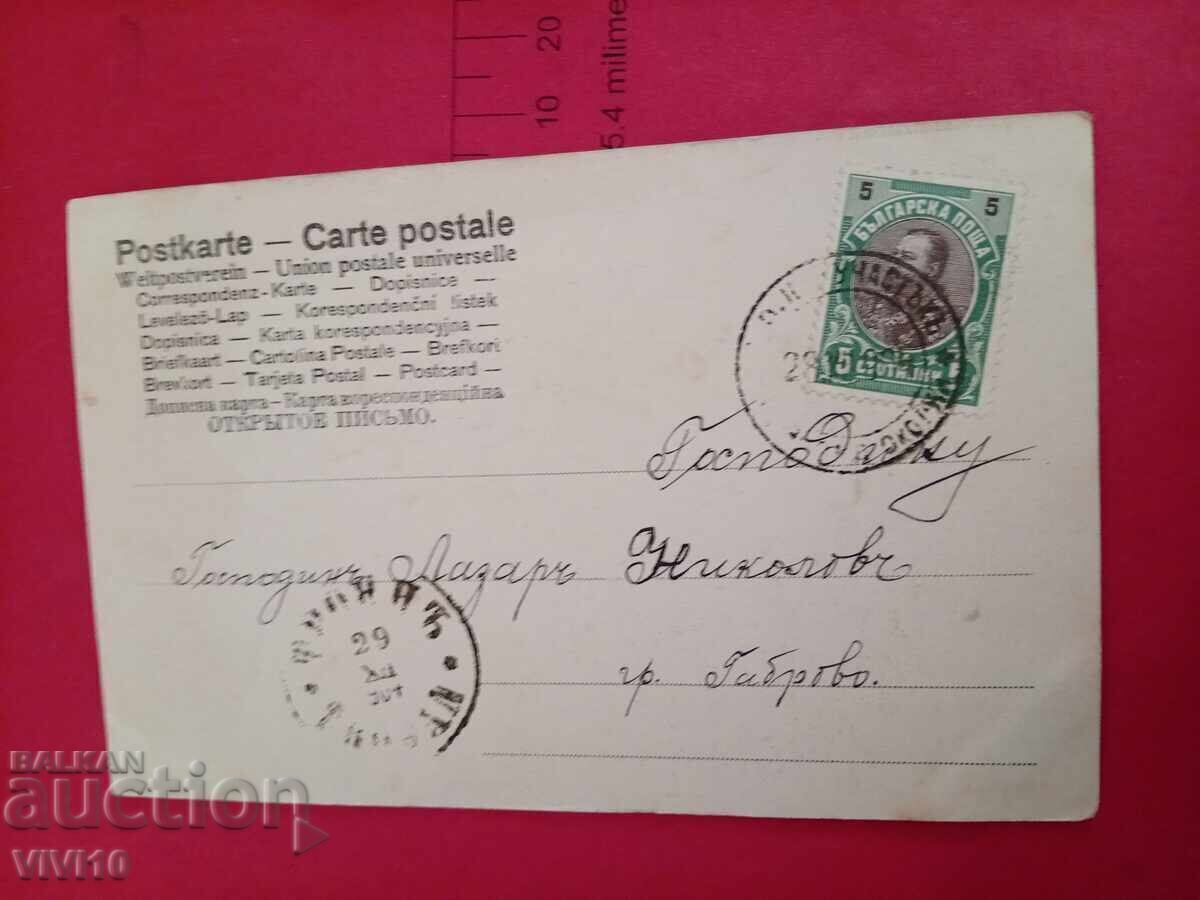 20
10
5.4 milime
Postkarte — Carte postale
Weltpostverein — Union postale universelle
Correspondenz-Karte — Dopisnice —
Levelező-Lap — Korespondenční listek
Dopisnica — Karta korespondencyjna —
Briefkaart — Cartolina Postale — Brefkort
Brevkort — Tarjeta Postal — Postcard —
Дописна карта — Карта кореспонденційна
ОТКРЫТОЕ ПИСЬМО.
5 5
БЪЛГАРСКА ПОЩА
5 СТОТИНКИ
УЧАСТЪКЪ
28
Господину
Господинъ Лазаръ Николовъ
29
XII
гр. Габрово.
BALKAN
auction
VIVI10